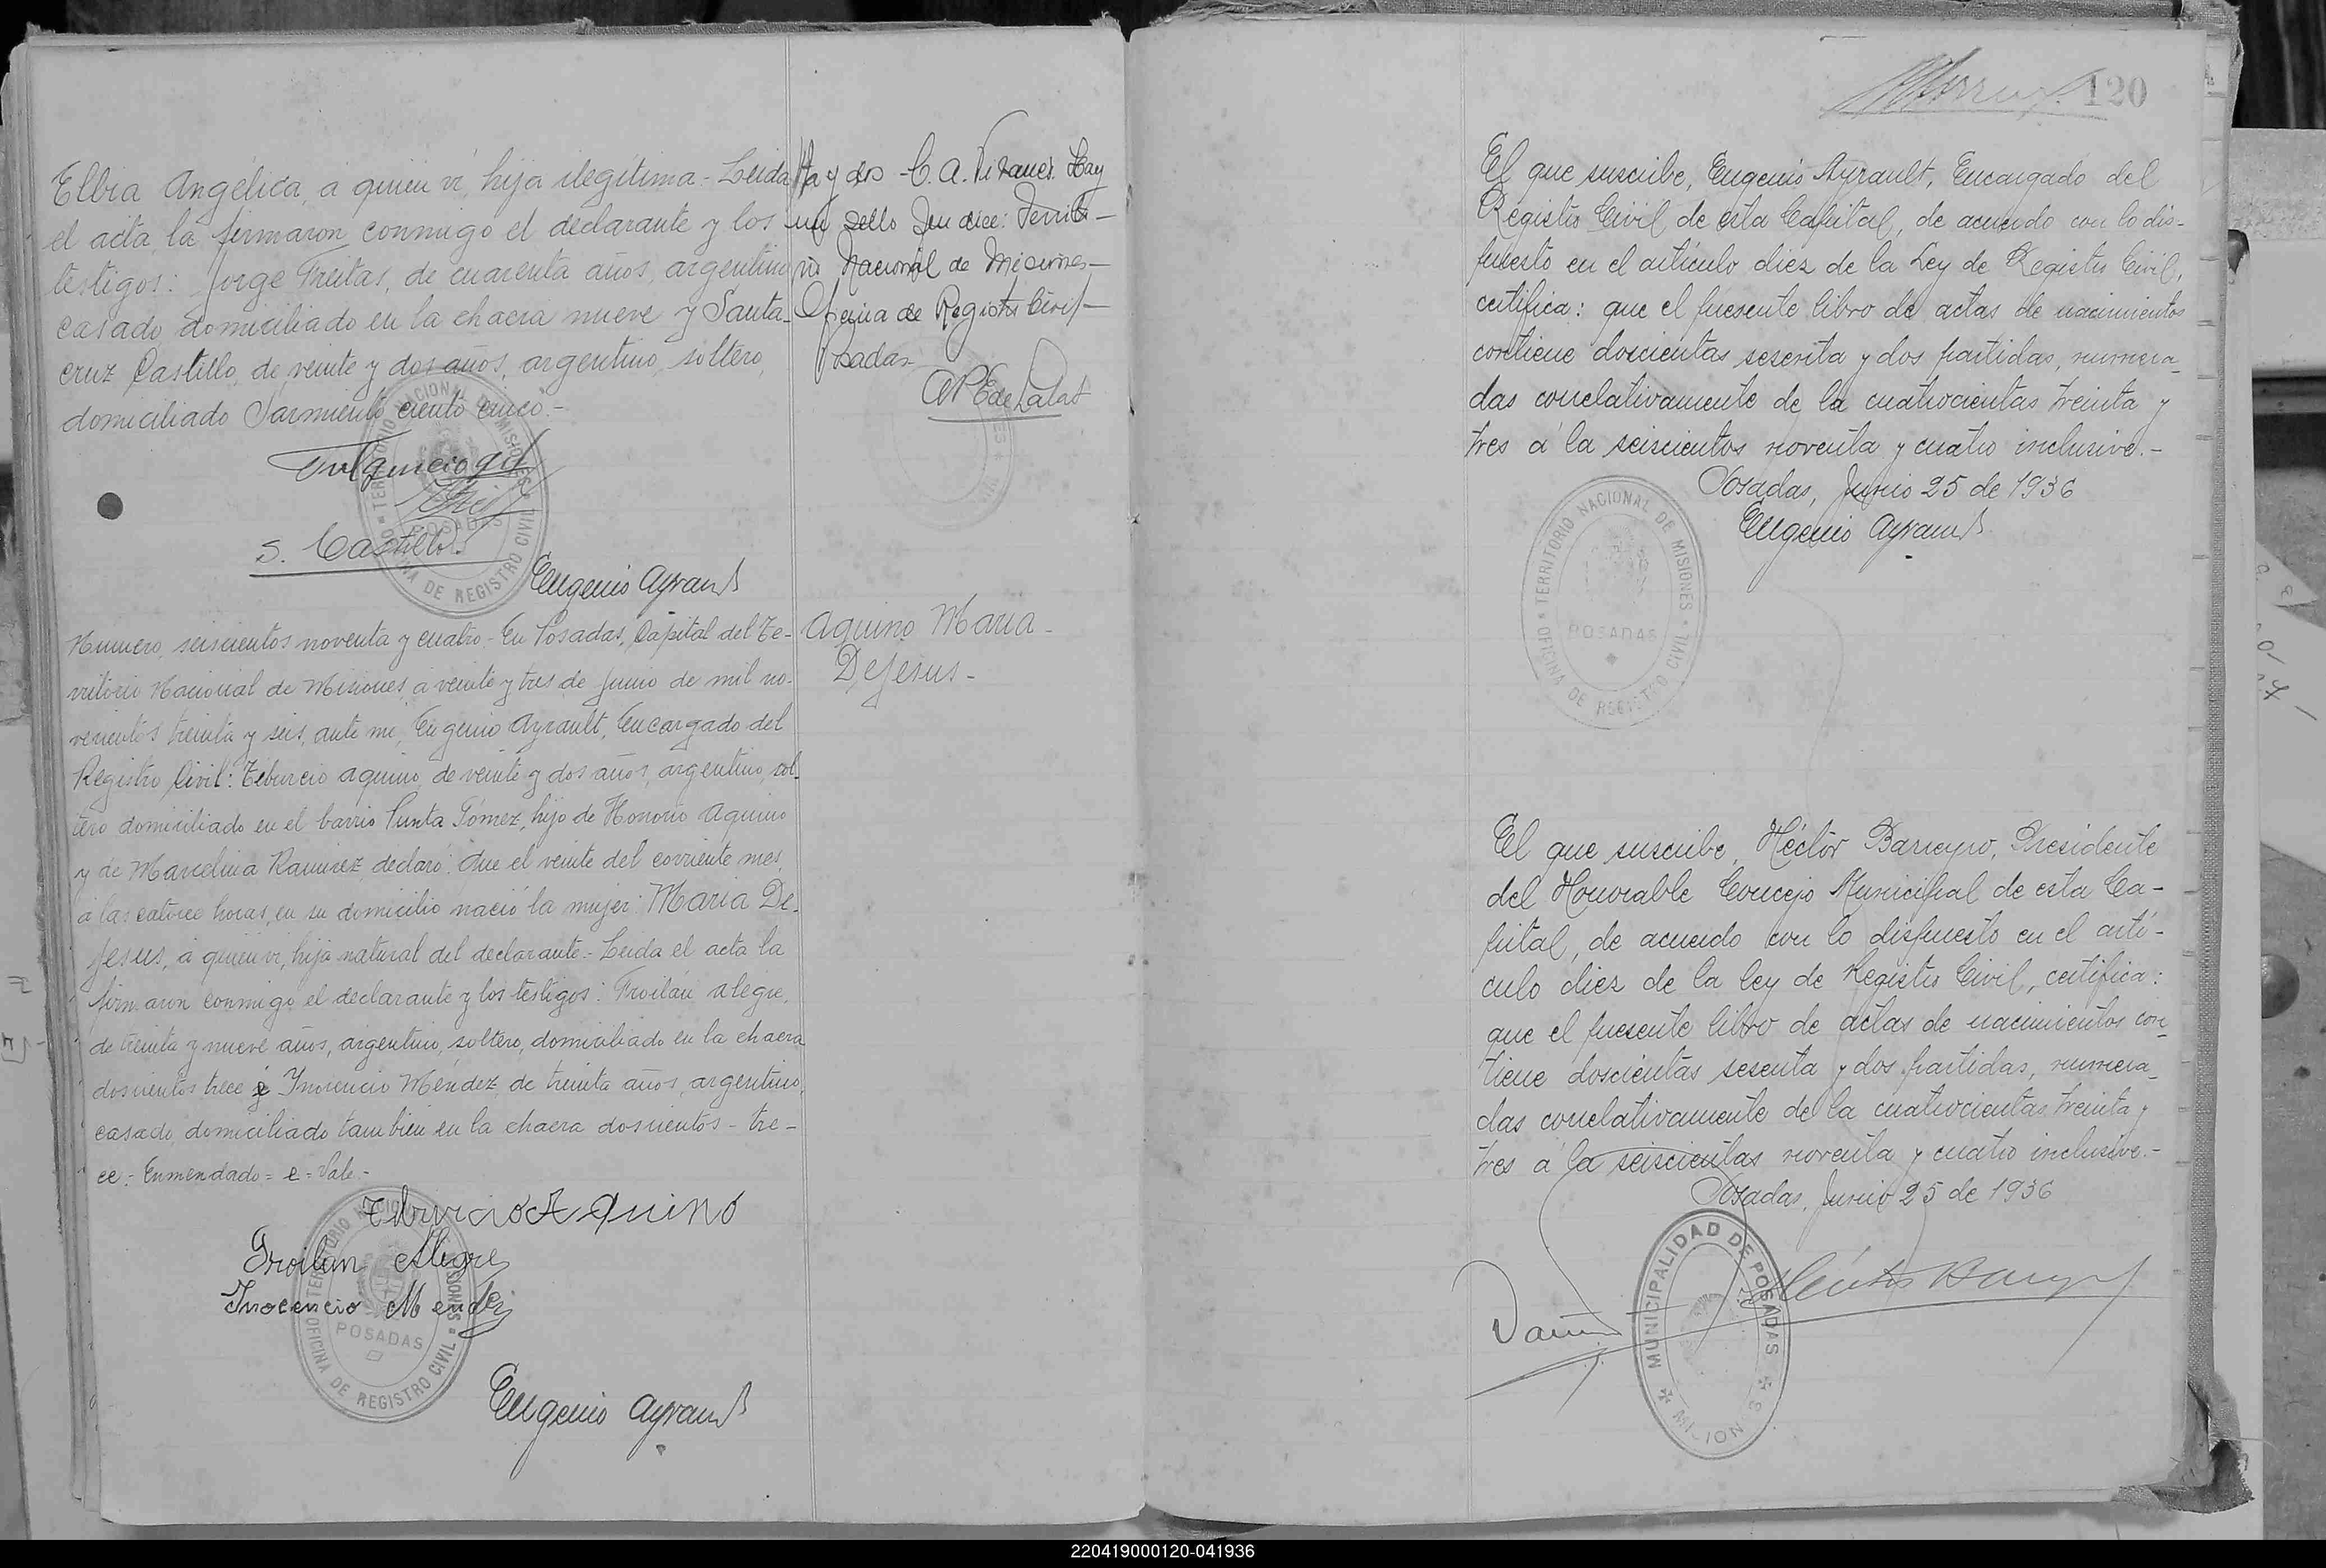 Elbia Angélica, a quien vi, hija ilegítima.- Leida
el acta, la firmaron conmigo el declarante y los
testigos: Jorge Freitas, de cuarenta años, argentino
casado, domiciliado en la chacra nueve y Santa-
cruz Castillo, de veinte y dos años, argentino, soltero,
domiciliado Sarmiento ciento cinco.-
Fulgencio Gil
S. Castillo
Eugenio Ayrault
ta y dos - C. A. Hay
un sello que dice: Territo-
rio Nacional de Misiones-
Oficina de Registro Civil-
Posadas-
Numero seiscientos noventa y cuatro.- En Posadas, Capital del Te-
rritorio Nacional de Misiones, a veinte y tres de Junio de mil no-
vecientos treinta y seis, ante mi, Eugenio Ayrault, Encargado del
Registro Civil: Tiburcio Aquino, de veinte y dos años, argentino, sol-
tero domiciliado en el barrio Punta Gómez, hijo de Honorio Aquino
y de Marcelina Ramirez, declaró: Que el veinte del corriente mes,
a las catorce horas, en su domicilio nació la mujer: Maria De-
Jesus, a quien vi, hija natural del declarante.- Leida el acta la
firmaron conmigo el declarante y los testigos: Froilán Alegre,
de treinta y nueve años, argentino, soltero, domiciliado en la chacra
doscientos trece é Inocencio Méndez, de treinta años, argentino,
casado, domiciliado tambien en la chacra doscientos - tre-
ce.- Enmendado = e = Vale.-
Tiburcio Aquino
Froilan Alegre
Inocencio Mendez
Eugenio Ayrault
Aquino Maria -
DeJesus -
TERRITORIO NACIONAL DE MISIONES
OFICINA DE REGISTRO CIVIL
POSADAS
120
El que suscribe, Eugenio Ayrault, Encargado del
Registro Civil de esta Capital, de acuerdo con lo dis-
puesto en el artículo diez de la Ley de Registro Civil,
certifica: que el presente libro de actas de nacimientos
contiene doscientas sesenta y dos partidas, numera-
das correlativamente de la cuatrocientas treinta y
tres a la seiscientos noventa y cuatro inclusive.-
Posadas, Junio 25 de 1936
Eugenio Ayrault
TERRITORIO NACIONAL DE MISIONES
OFICINA DE REGISTRO CIVIL
POSADAS
El que suscribe, Héctor Barreyro, Presidente
del Honorable Concejo Municipal de esta Ca-
pital, de acuerdo con lo dispuesto en el artí-
culo diez de la ley de Registro Civil, certifica:
que el presente libro de actas de nacimientos con-
tiene doscientas sesenta y dos partidas, numera-
das correlativamente de la cuatrocientas treinta y
tres a la seiscientas noventa y cuatro inclusive.-
Posadas, Junio 25 de 1936
MUNICIPALIDAD DE POSADAS
MISIONES
220419000120-041936